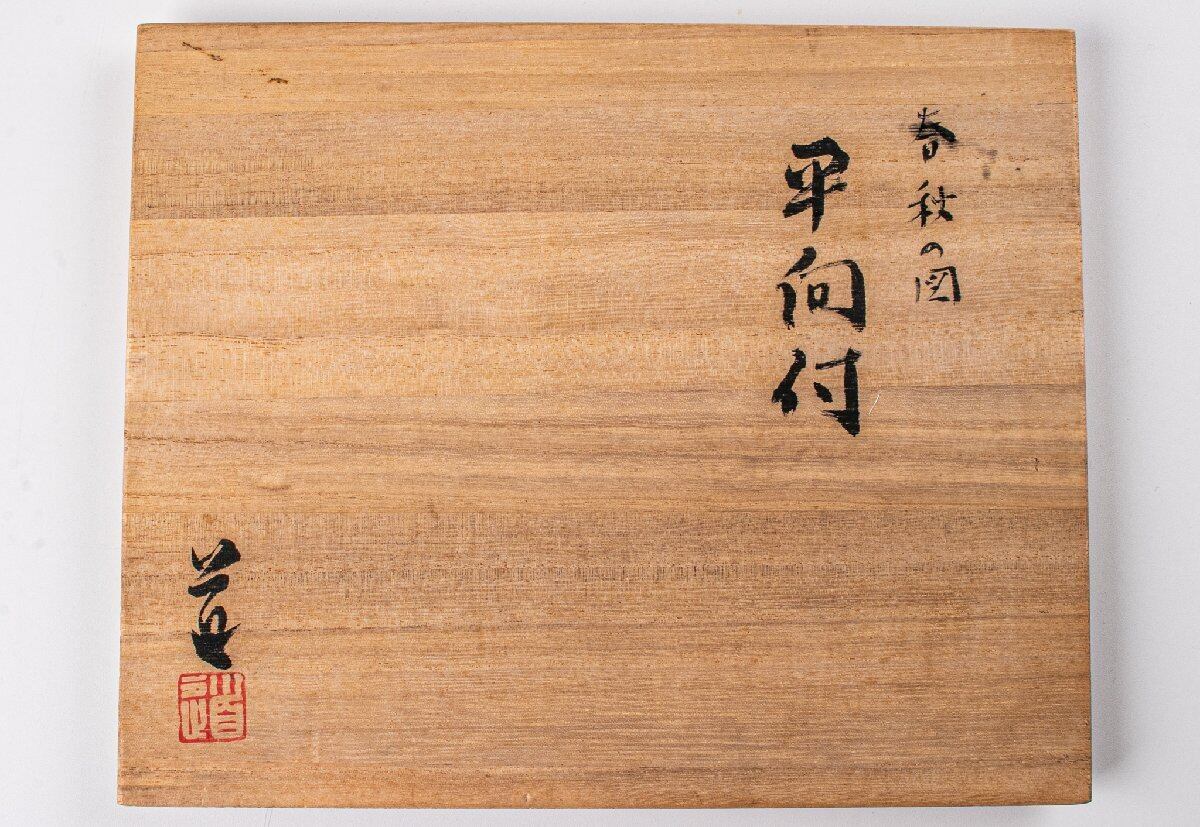 春秋の図
平向付